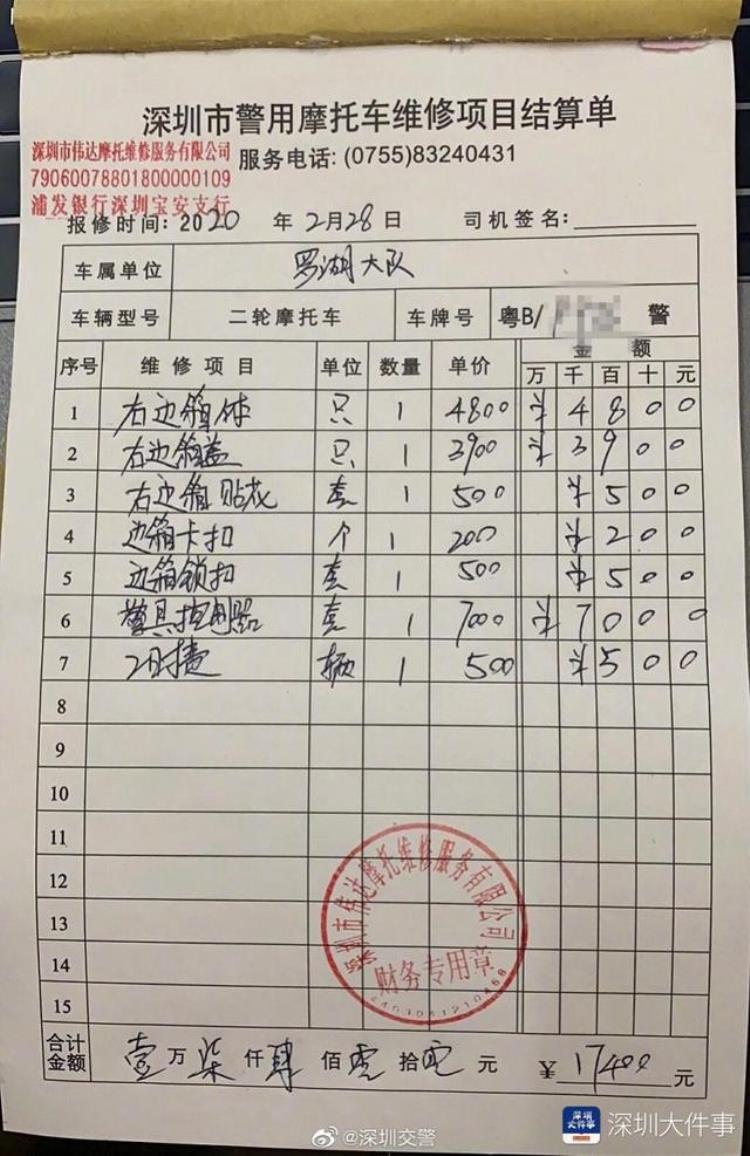 深圳市警用摩托车维修项目结算单
深圳市伟达摩托维修服务有限公司
服务电话：(0755)83240431
79060078801800000109
浦发银行深圳宝安支行
报修时间：2020 年 2月28日 司机签名：
车属单位 罗湖大队
车辆型号 二轮摩托车 车牌号 粤B/ 警
序号 维修项目 单位 数量 单价 金额
万 千 百 十 元
1 右边箱体 只 1 4800 ¥ 4 8 0 0
2 右边箱盖 只 1 3900 ¥ 3 9 0 0
3 右边箱贴花 套 1 500 ¥ 5 0 0
4 边箱卡扣 个 1 200 ¥ 2 0 0
5 边箱锁扣 套 1 500 ¥ 5 0 0
6 警具控制器 套 1 7000 ¥ 7 0 0 0
7 辆 1 500 ¥ 5 0 0
8
9
10
11
12
13
14
15
深圳市伟达摩托维修服务有限公司
财务专用章
合计金额 壹万柒仟肆佰零拾零元 ¥17400元
@深圳交警
深圳大件事
深圳大件事